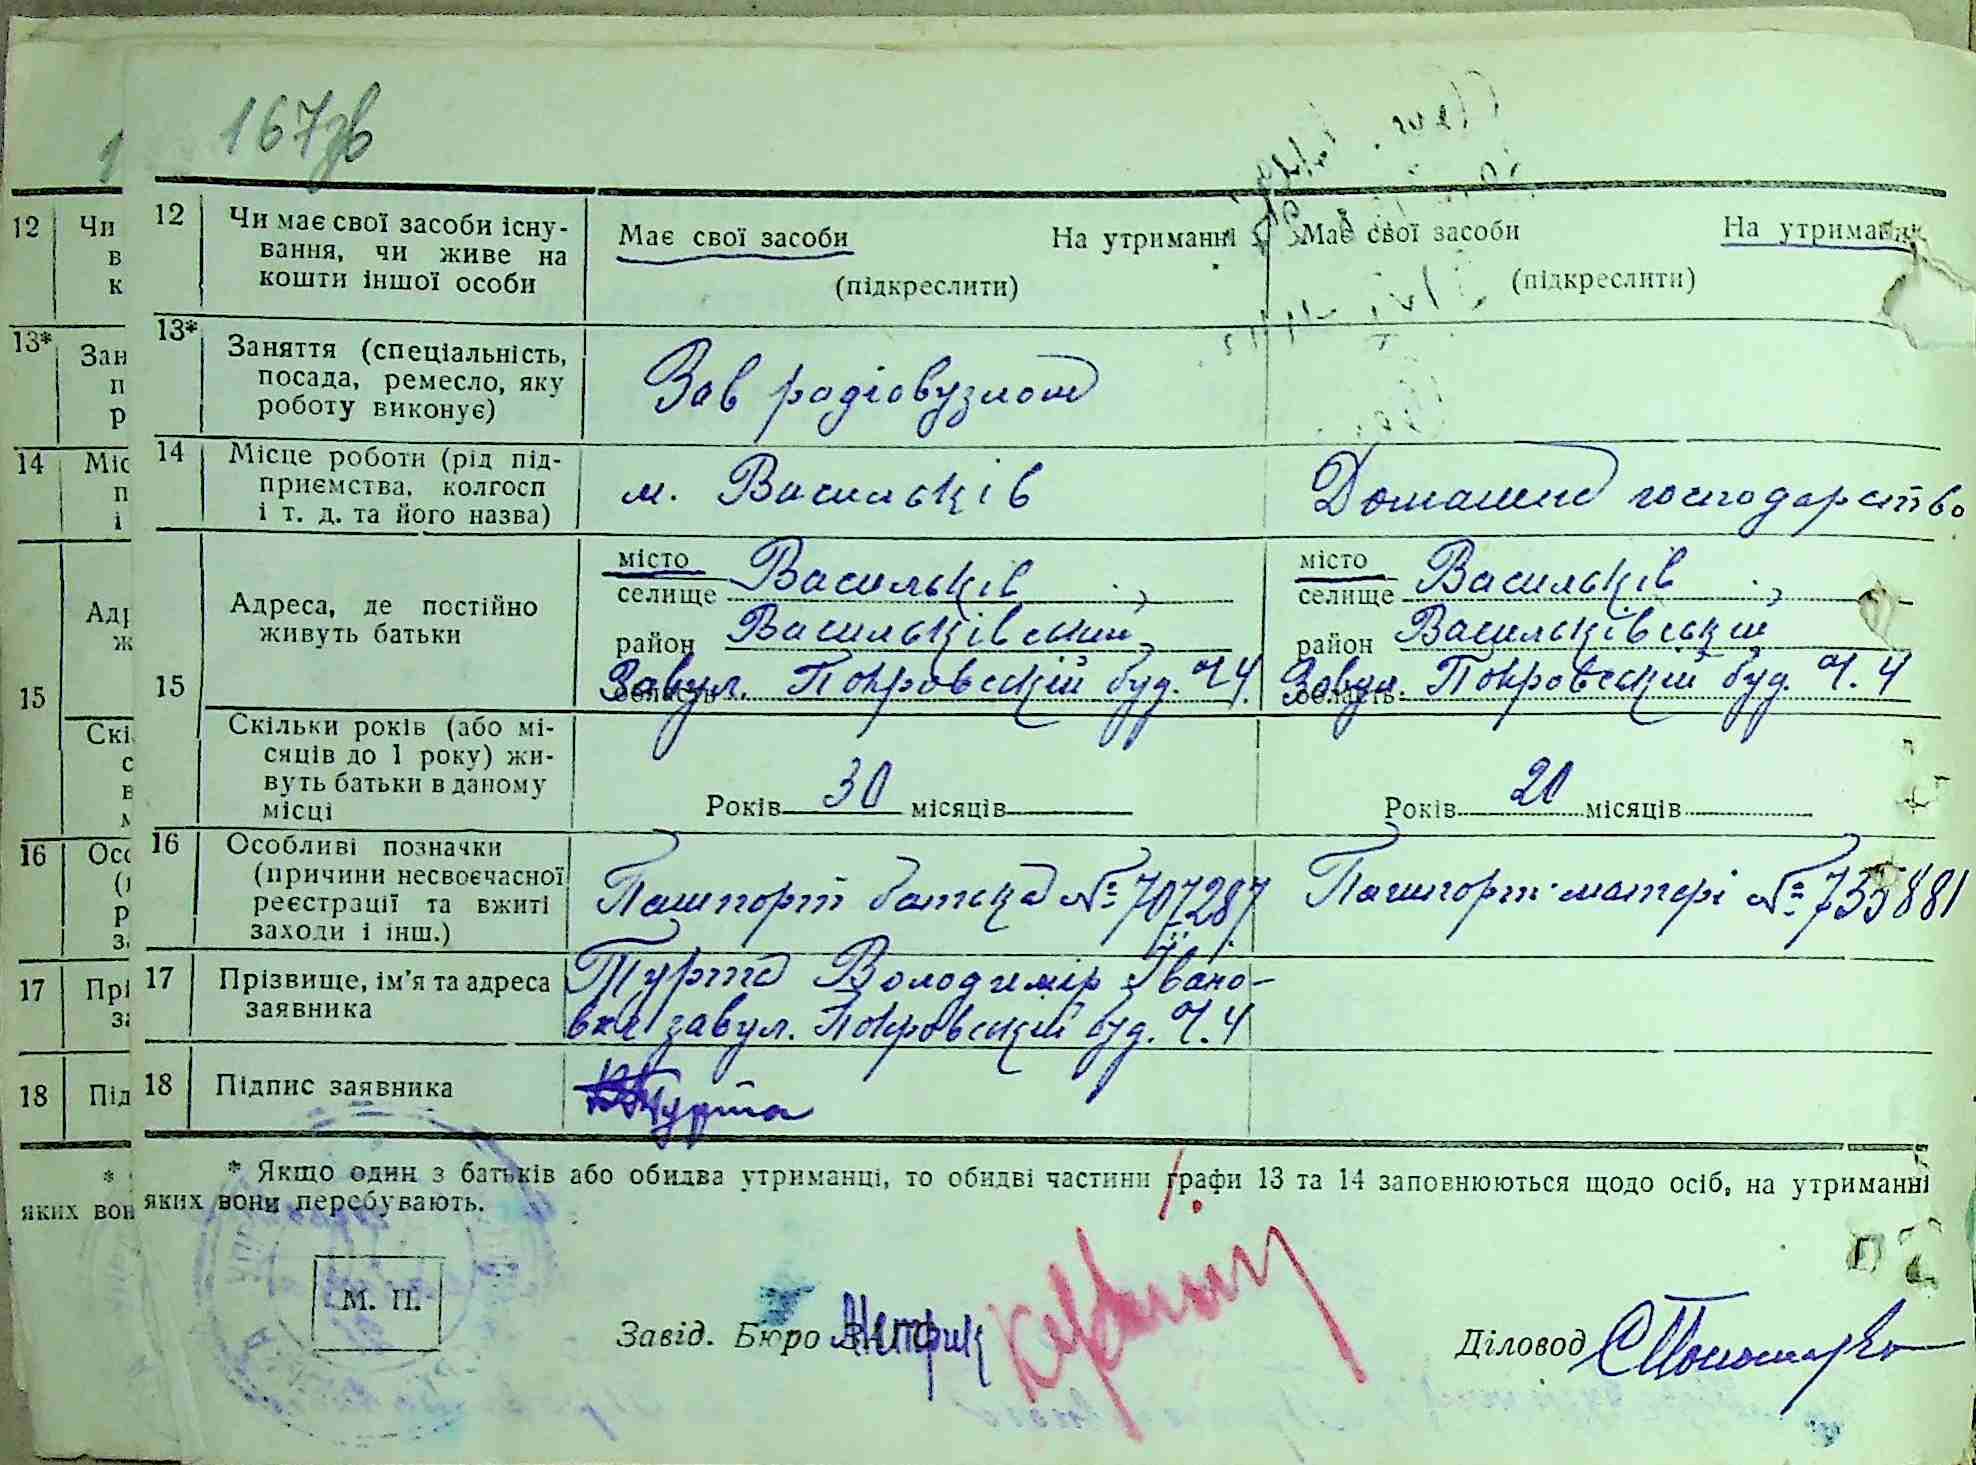 167зв
12 Чи має свої засоби існу-
вання, чи живе на
кошти іншої особи
Має свої засоби На утриманні
(підкреслити)
Має свої засоби На утриманні
(підкреслити)
13* Заняття (спеціальність,
посада, ремесло, яку
роботу виконує)
Зав радіовузлом
14 Місце роботи (рід під-
приємства, колгосп
і т. д. та його назва)
м. Васильків
Домашнє господарство
15 Адреса, де постійно
живуть батьки
місто
селище Васильків,
район Васильківський,
область Завул. Покровській буд. Ч 4.
місто
селище Васильків,
район Васильківській
область Завул. Покровській буд. Ч. 4
Скільки років (або мі-
сяців до 1 року) жи-
вуть батьки в даному
місці
Років 30 місяців
Років 20 місяців
16 Особливі позначки
(причини несвоєчасної
реєстрації та вжиті
заходи і інш.)
Пашпорт батька № 707287
Пашпорт матері № 735881
17 Прізвище, ім'я та адреса
заявника
Турта Володимір Івано-
вич завул. Покровській буд. Ч. 4
18 Підпис заявника
Турта
* Якщо один з батьків або обидва утриманці, то обидві частини графи 13 та 14 заповнюються щодо осіб, на утриманні
яких вони перебувають.
М. П.
Завід. Бюро
Діловод
12 Чи
в
к
13* Зан
п
р
14 Міс
п
і
15 Адр
ж
Скі
с
в
м
16 Осо
(п
р
за
17 Прі
за
18 Під
*
яких вон